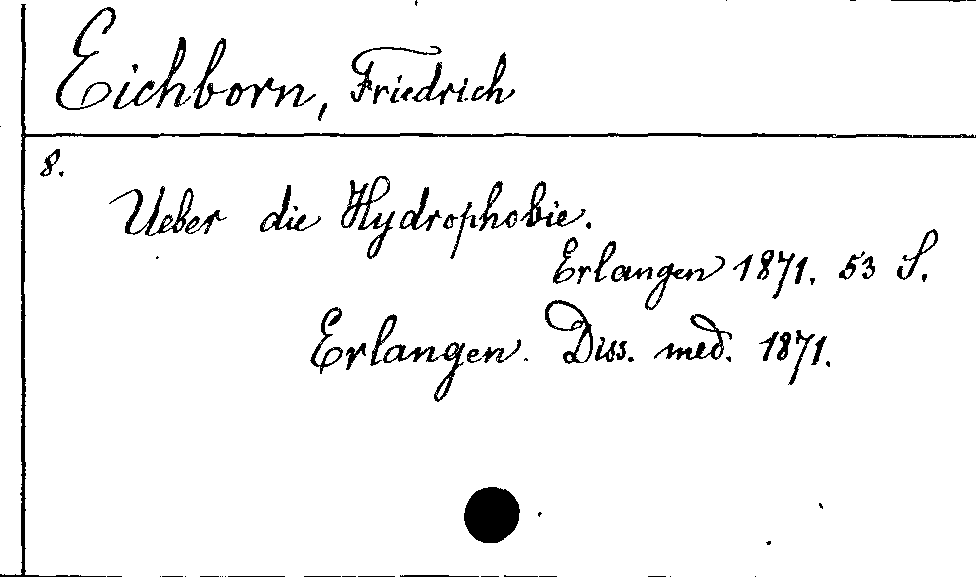 Eichborn, Friedrich
8.
Ueber die Hydrophobie.
Erlangen 1871. 53 S.
Erlangen. Diss. med. 1871.